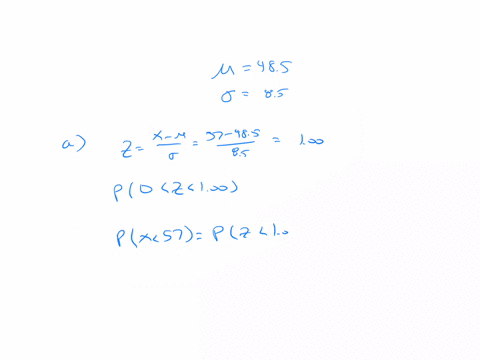 μ = 48.5
σ = 8.5
a) z = (x-μ)/σ = (57-48.5)/8.5 = 1.00
P(0<z<1.00)
P(x<57) = P(z<1.0